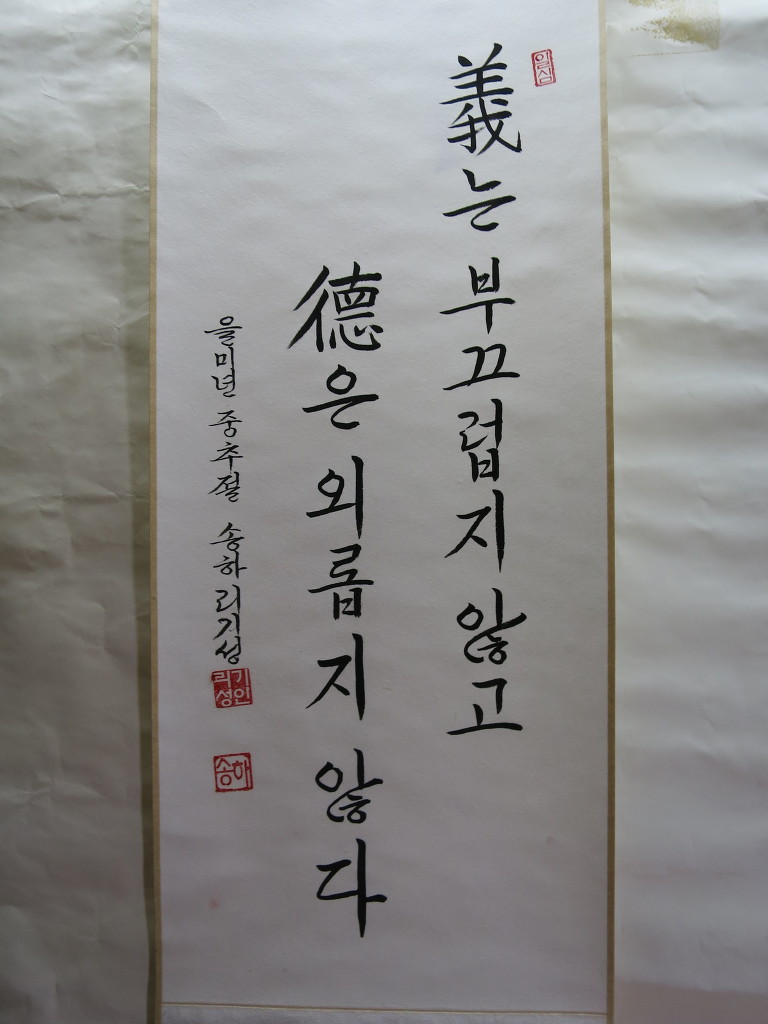 일심
義는 부끄럽지 않고
德은 외롭지 않다
을미년 중추절 송하 리기성
리기성인
송하